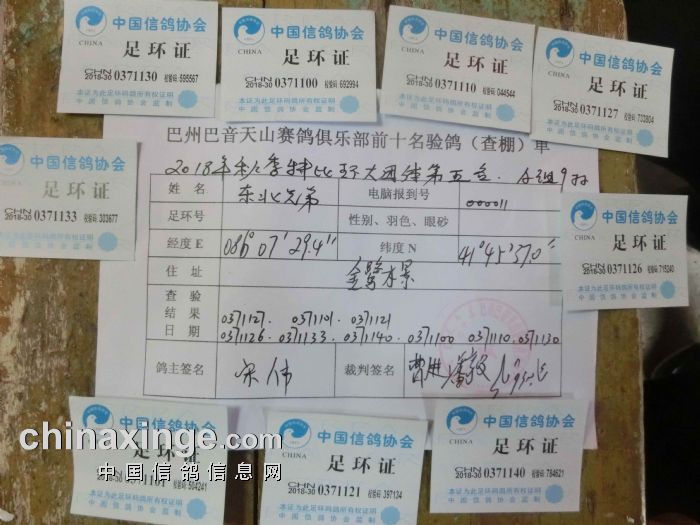 中国信鸽协会
CHINA
足环证
CHN
2018-30 0371130 校验码: 595567
本证为此足环码鸽所有权证明
中国信鸽协会监制
中国信鸽协会
CHINA
足环证
CHN
2018-30 0371100 校验码: 692994
本证为此足环码鸽所有权证明
中国信鸽协会监制
中国信鸽协会
CHINA
足环证
CHN
2018-30 0371110 校验码: 044544
本证为此足环码鸽所有权证明
中国信鸽协会监制
中国信鸽协会
CHINA
足环证
CHN
2018-30 0371127 校验码: 733804
本证为此足环码鸽所有权证明
中国信鸽协会监制
中国信鸽协会
足环证
CHN
2018-30 0371133 校验码: 303677
本证为此足环码鸽所有权证明
中国信鸽协会监制
巴州巴音天山赛鸽俱乐部前十名验鸽（查棚）单
2018年秋季特比环大团体第五名.
姓名 东北兄弟 电脑报到号 000011
足环号 性别、羽色、眼砂
经度 E 086°07'29.4" 纬度 N 41°45'37.0"
住址
查验
结果 0371127. 0371101. 0371121
日期 0371126. 0371133. 0371140. 0371100 0371110. 0371130
鸽主签名 宋伟 裁判签名
中国信鸽协会
CHINA
足环证
CHN
2018-30 0371126 校验码: 715240
本证为此足环码鸽所有权证明
中国信鸽协会监制
中国信鸽协会
足环证
本证为此足环码鸽所有权证明
中国信鸽协会监制
中国信鸽协会
足环证
CHN
2018-30 0371121 校验码: 397134
本证为此足环码鸽所有权证明
中国信鸽协会监制
中国信鸽协会
CHINA
足环证
CHN
2018-30 0371140 校验码: 784621
本证为此足环码鸽所有权证明
中国信鸽协会监制
chinaxinge.com
中国信鸽信息网